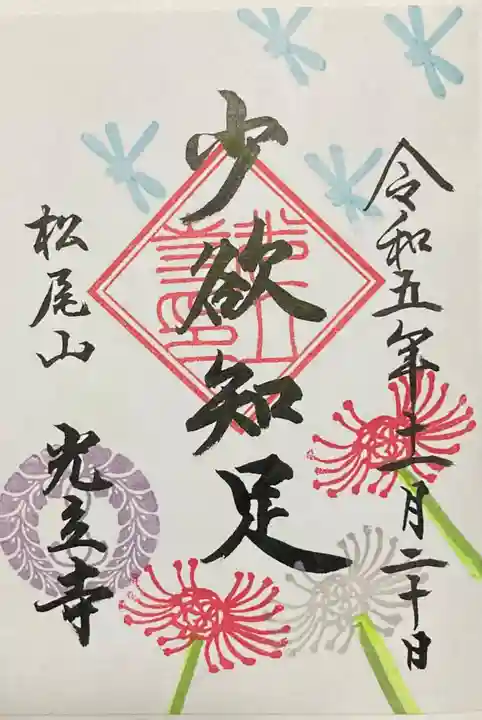 令和五年十一月二十日
少欲知足
松尾山 光立寺